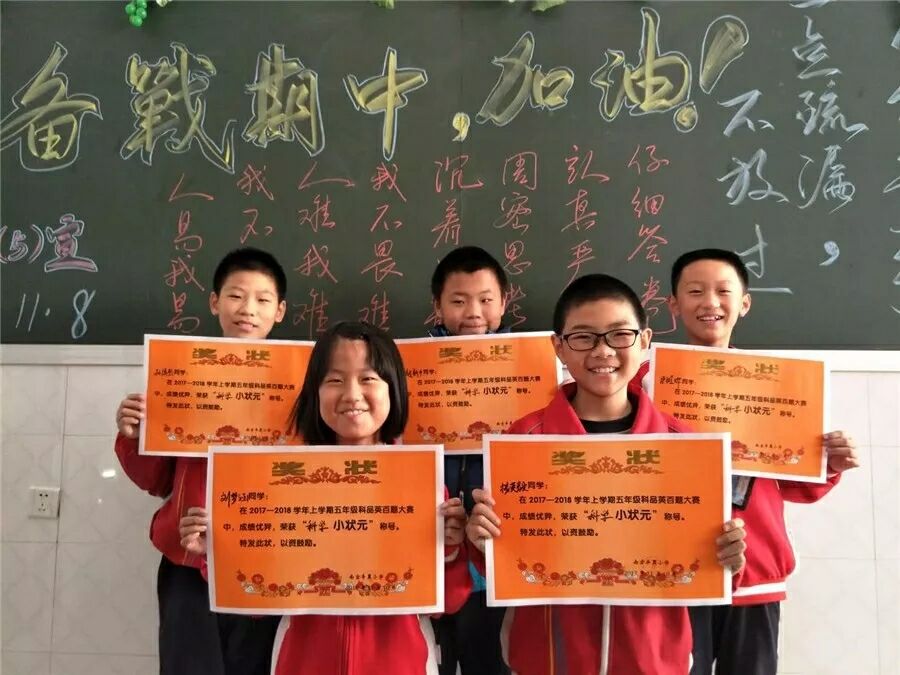 备戰期中,加油!
疏漏,
不放过
仔细答卷
认真严
周密思
沉着
我不畏难
人难我难
我不
人易我易
(5)宣
11.8
奖状
同学:
在2017—2018学年上学期五年级科品英百题大赛
中,成绩优异,荣获“科学小状元”称号。
特发此状,以资鼓励。
奖状
同学:
在2017—2018学年上学期五年级科品英百题大赛
中,成绩优异,荣获“科学小状元”称号。
特发此状,以资鼓励。
奖状
同学:
在2017—2018学年上学期五年级科品英百题大赛
中,成绩优异,荣获“科学小状元”称号。
特发此状,以资鼓励。
奖状
刘梦涵同学:
在2017—2018学年上学期五年级科品英百题大赛
中,成绩优异,荣获“科学小状元”称号。
特发此状,以资鼓励。
奖状
同学:
在2017—2018学年上学期五年级科品英百题大赛
中,成绩优异,荣获“科学小状元”称号。
特发此状,以资鼓励。